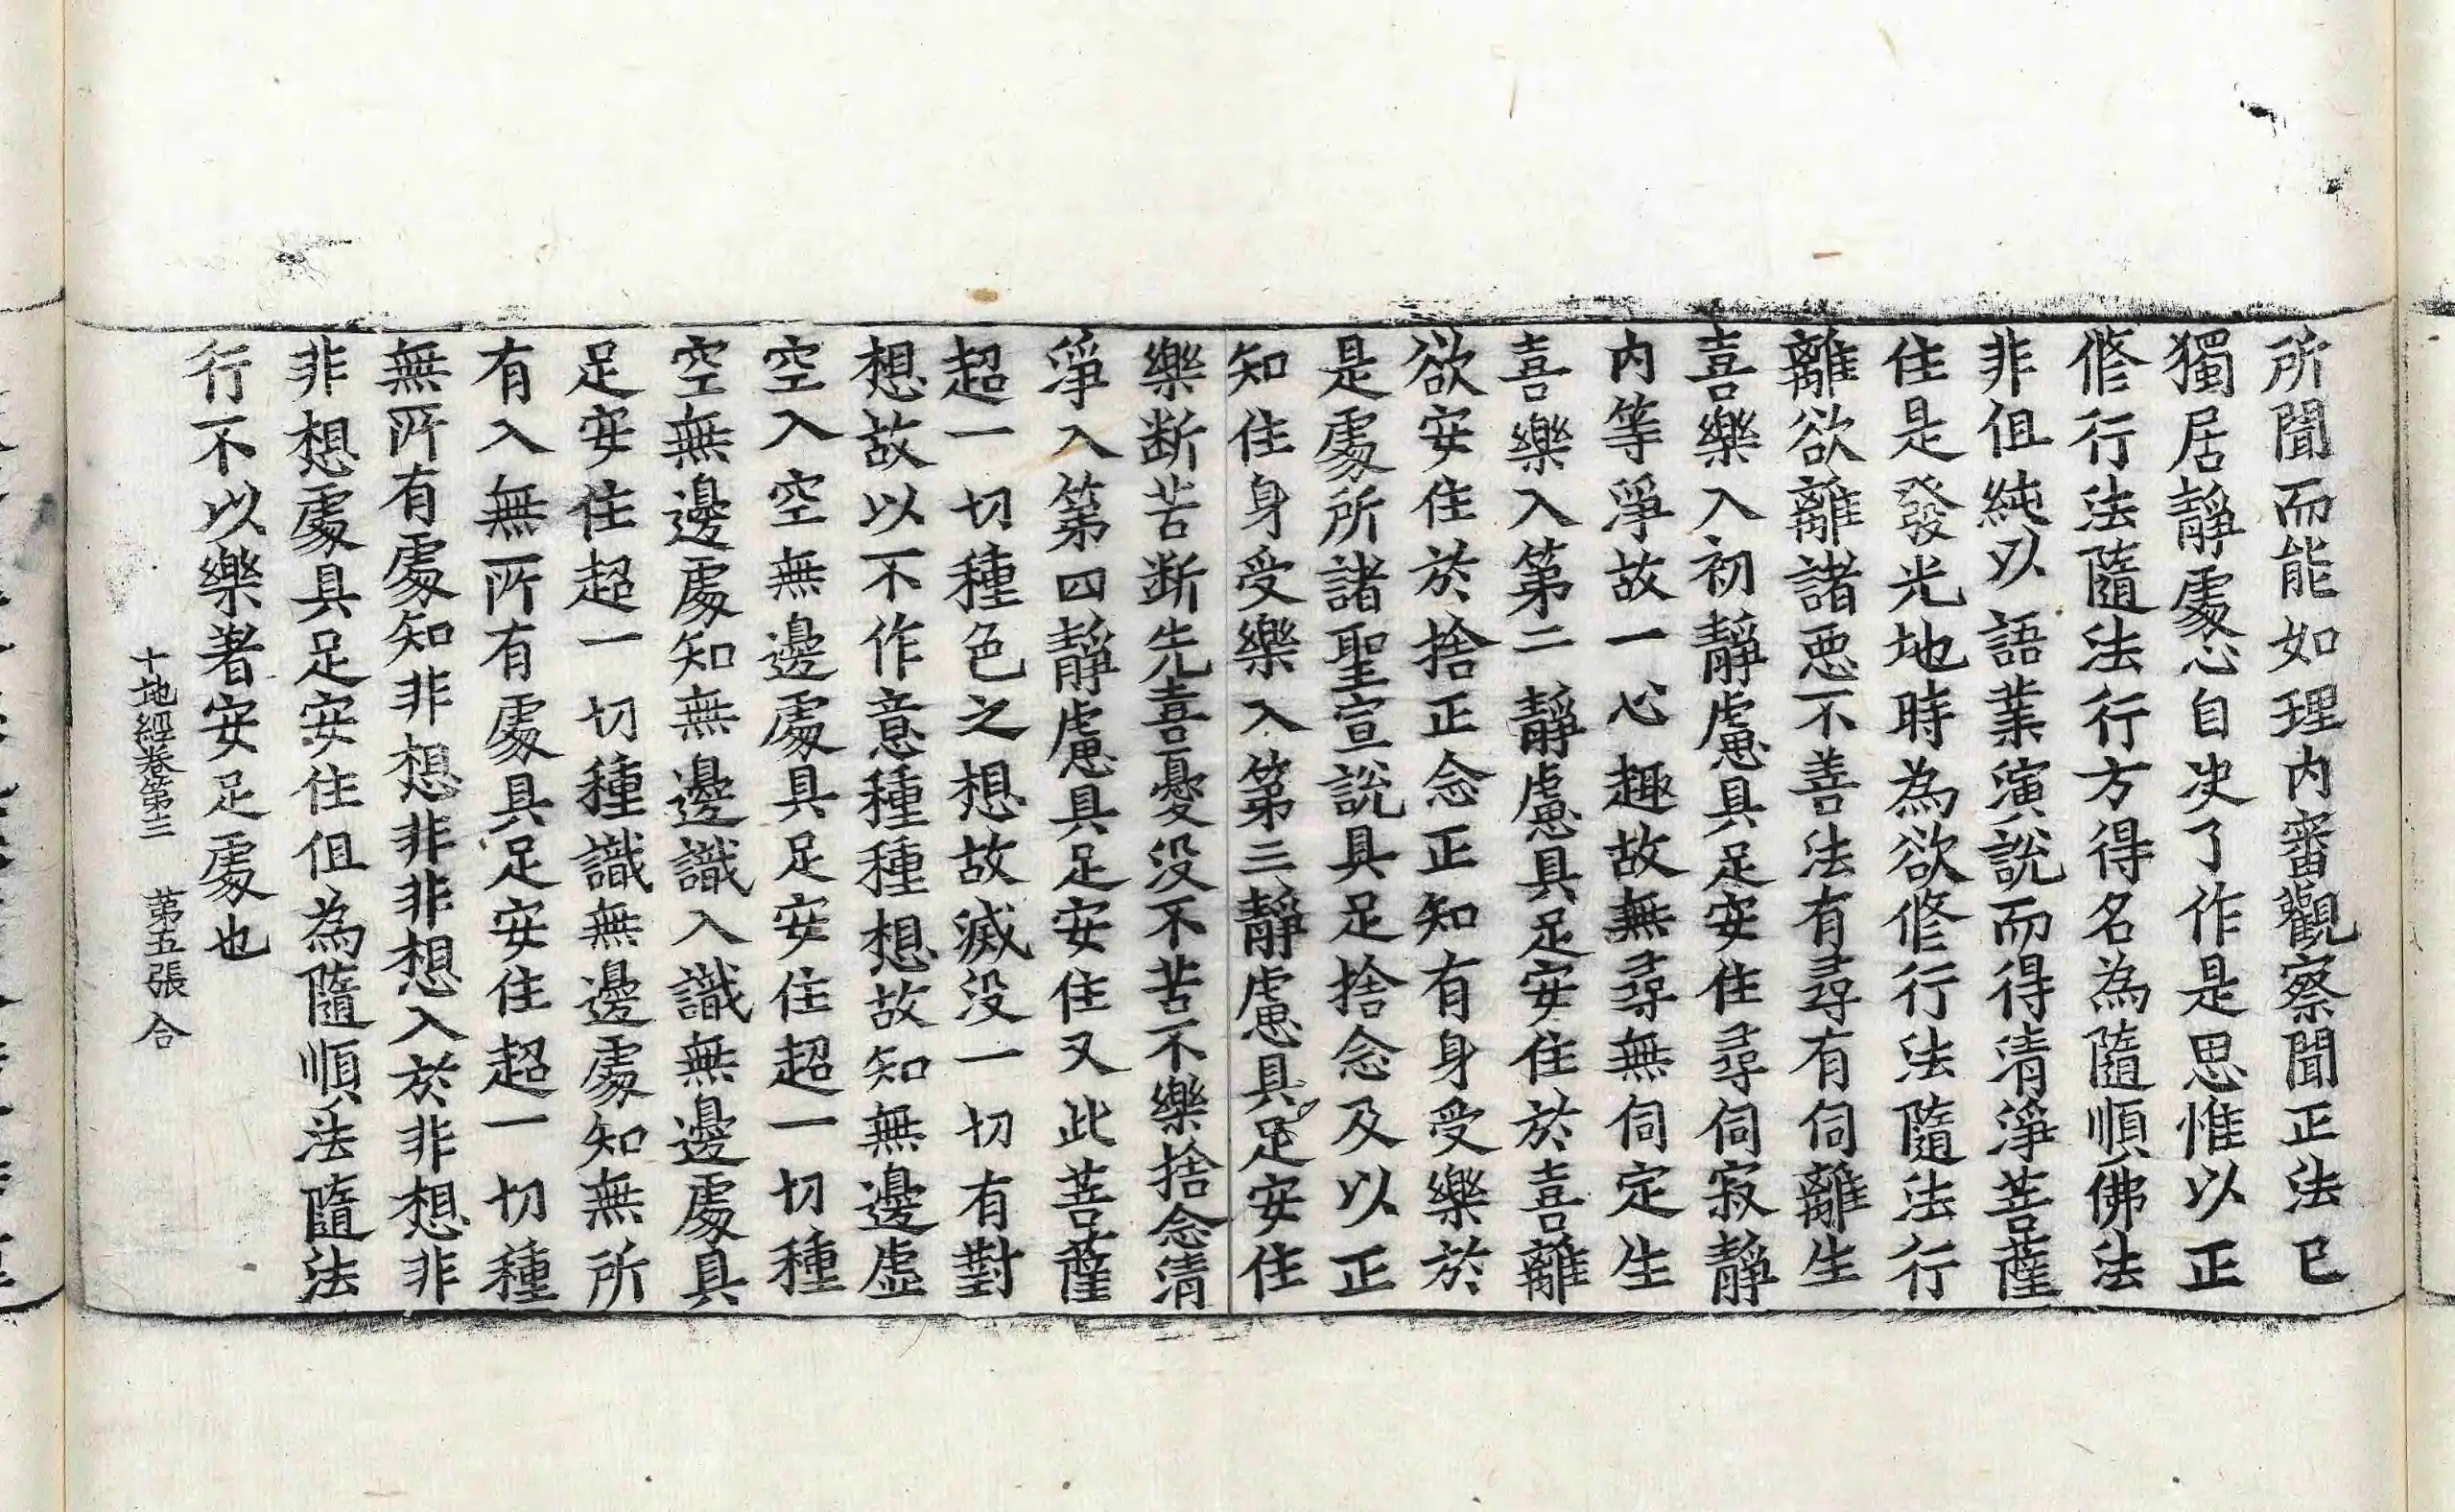 所聞而能如理內審觀察聞正法已
獨居靜處心自决了作是思惟以正
修行法隨法行方得名為隨順佛法
非但純以語業演說而得清淨菩薩
住是發光地時為欲修行法隨法行
離欲離諸惡不善法有尋有伺離生
喜樂入初靜慮具足安住尋伺寂靜
內等淨故一心趣故無尋無伺定生
喜樂入第二靜慮具足安住於喜離
欲安住於捨正念正知有身受樂於
是處所諸聖宣說具足捨念及以正
知住身受樂入第三靜慮具足安住
樂断苦断先喜憂没不苦不樂捨念清
淨入第四靜慮具足安住又此菩薩
超一切種色之想故滅没一切有對
想故以不作意種種想故知無邊虛
空入空無邊處具足安住超一切種
空無邊處知無邊識入識無邊處具
足安住超一切種識無邊處知無所
有入無所有處具足安住超一切種
無所有處知非想非非想入於非想非
非想處具足安住但為隨順法隨法
行不以樂著安足處也
十地經卷第三 第五張 合